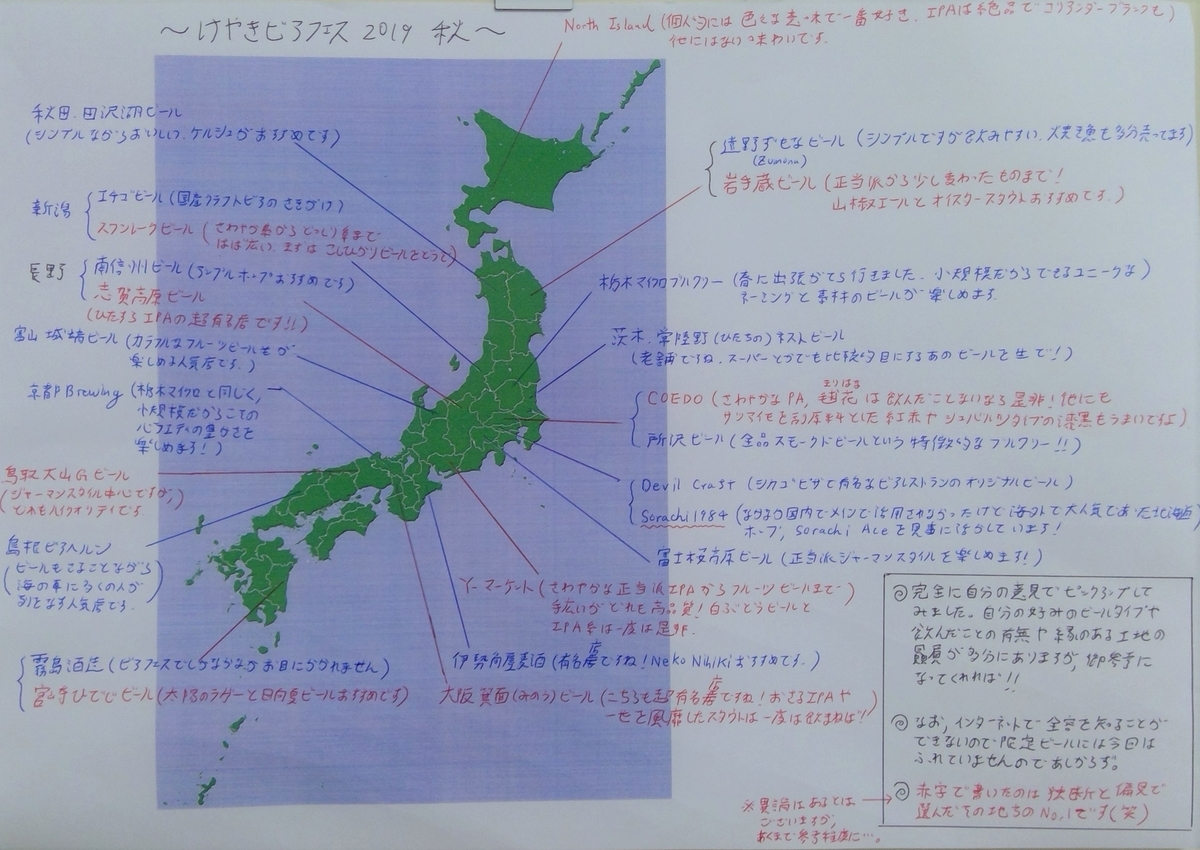 ～けやきビアフェス 2019 秋～
North Island (個人的には色んな意味で一番好き、IPAは絶品でコリアンダーブラックも
他にはない味わいです。
秋田、田沢湖ビール
(シンプルながらおいしい、ケルシュがおすすめです)
新潟
エチゴビール (国産クラフトビアのさきがけ)
スワンレークビール (さわやか系からどっしり系まで
はば広い、まずは こしひかりビールをどうぞ)
長野
南信州ビール (アップルホップおすすめです)
志賀高原ビール
(ひたすらIPAの超有名店です!!)
富山 城端ビール (カラフルなフルーツビールもが
楽しめる人気店です。)
京都Brewing (栃木マイクロと同じく、
小規模だからこその
バラエティの豊かさを
楽しめます!)
鳥取 大山Gビール
(ジャーマンスタイル中心ですが、
どれもハイクオリティです。
島根ビアヘルン
(ビールもさることながら
海の幸に多くの人が
列をなす人気店です。)
霧島酒造 (ビアフェスでしかなかなかお目にかかれません)
宮崎ひでじビール (太陽のラガーと日向夏ビールおすすめです)
遠野ずもなビール (シンプルですが飲みやすい、焼き魚も多分売ってます)
(Zumona)
岩手蔵ビール (正当派から少し変わったものまで!
山椒エールとオイスタースタウトおすすめです。)
栃木マイクロブルワリー (春に出張がてら行きました、小規模だからできるユニークな)
ネーミングと素材のビールが楽しめます。
茨木、常陸野(ひたちの)ネストビール
(老舗ですね、スーパーとかでも比較的目にするあのビールを生で!)
まりはな
COEDO (さわやかなPA, 毬花は飲んだことないなら是非!他にも
サツマイモを副原料とした紅赤やシュバルツタイプの漆黒もうまいですよ)
所沢ビール (全品スモークドビールという特徴的なブルワリー!!)
Devil Craft (シカゴピザで有名なビアレストランのオリジナルビール)
Sorachi1984 (なかなか国内でメインで活用されなかったけど海外で大人気であった北海道
ホップ, Sorachi Aceを見事に活かしています!
富士桜高原ビール (正当派ジャーマンスタイルを楽しめます!)
Y.マーケット (さわやかな正当派IPAからフルーツビールまで)
手広いがどれも高品質!白ぶどうビールと
IPA系は一度は是非。
伊勢角屋麦酒 (有名店ですね!Neko Nihikiおすすめです。)
大阪 箕面(みのう)ビール (こちらも超有名店ですね!おさるIPAや
一世を風靡したスタウトは一度は飲まねば!)
◎完全に自分の意見でピックアップして
みました。自分の好みのビールタイプや
飲んだことの有無や縁のある土地の
贔屓が多分にありますが、御参考に
なってくれれば!!
◎なお、インターネットで全容を知ることが
できないので限定ビールには今回は
ふれていませんのであしからず。
◎赤字で書いたのは独断と偏見で
選んだその地方のNo.1です(笑)
※異論はあるとは
ございますが、
あくまで参考程度に…。